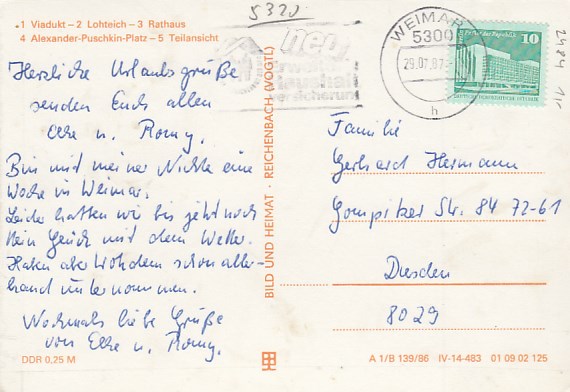 5320
1 Viadukt – 2 Lohteich – 3 Rathaus
4 Alexander-Puschkin-Platz – 5 Teilansicht
neu
Haushalt
versicherung
WEIMAR
5300
29.07.87
h
10
2484
Herzliche Urlaubsgrüße
senden Euch allen
Elke u. Romy.
Bin mit meiner Nichte eine
Woche in Weimar.
Leider hatten wir bis jetzt noch
kein Glück mit dem Wetter.
Haben aber trotzdem schon aller-
hand unternommen.
Nochmals liebe Grüße
von Elke u. Romy.
BILD UND HEIMAT · REICHENBACH (VOGTL)
Familie
Gerhard Hermann
Gompitzer Str. 84 72-61
Dresden
8029
DDR 0,25 M
A 1/B 139/86 IV-14-483 01 09 02 125